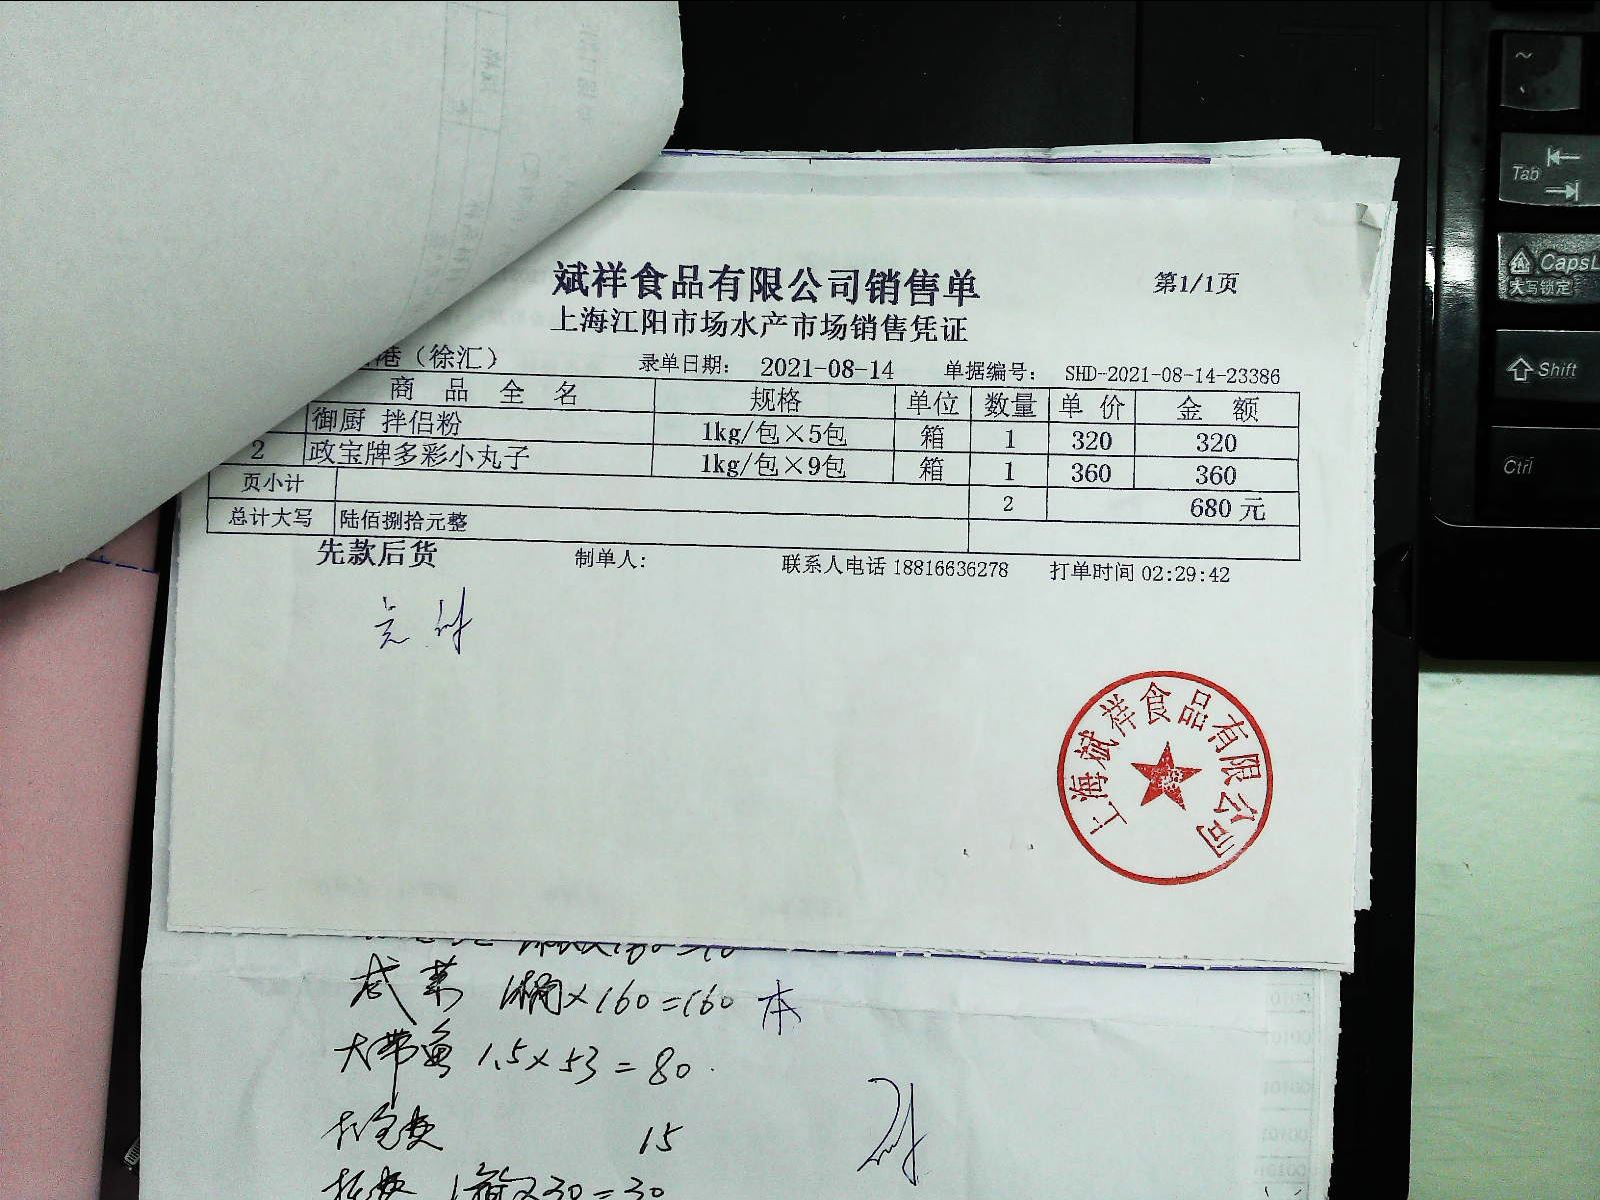 斌祥食品有限公司销售单
第1/1页
上海江阳市场水产市场销售凭证
港（徐汇） 录单日期： 2021-08-14 单据编号： SHD-2021-08-14-23386
商 品 全 名 规格 单位 数量 单 价 金 额
御厨 拌侣粉 1kg/包×5包 箱 1 320 320
2 政宝牌多彩小丸子 1kg/包×9包 箱 1 360 360
页小计 2 680 元
总计大写 陆佰捌拾元整
先款后货 制单人： 联系人电话 18816636278 打单时间 02:29:42
上海斌祥食品有限公司
1桶×160=160 本
大带鱼 1.5×53=80
15
1箱×30=30
~
Tab
CapsL
大写锁定
Shift
Ctrl